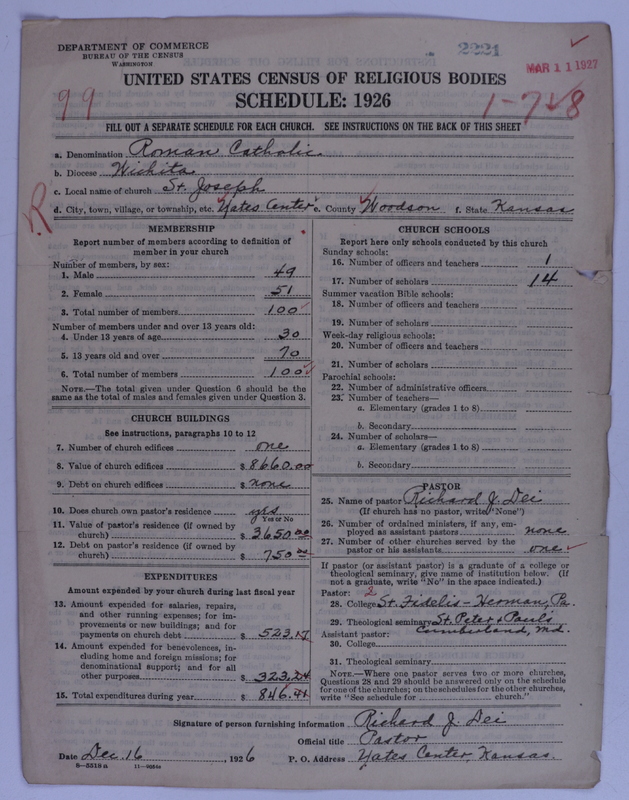 DEPARTMENT OF COMMERCE
BUREAU OF THE CENSUS
WASHINGTON
2221
MAR 11 1927
UNITED STATES CENSUS OF RELIGIOUS BODIES
SCHEDULE: 1926
99
1-7-28
FILL OUT A SEPARATE SCHEDULE FOR EACH CHURCH. SEE INSTRUCTIONS ON THE BACK OF THIS SHEET
a. Denomination Roman Catholic
b. Diocese Wichita
c. Local name of church St. Joseph
d. City, town, village, or township, etc. Yates Center e. County Woodson f. State Kansas
R
MEMBERSHIP
Report number of members according to definition of
member in your church
Number of members, by sex:
1. Male 49
2. Female 51
3. Total number of members 100
Number of members under and over 13 years old:
4. Under 13 years of age 30
5. 13 years old and over 70
6. Total number of members 100
NOTE.—The total given under Question 6 should be the
same as the total of males and females given under Question 3.
CHURCH BUILDINGS
See instructions, paragraphs 10 to 12
7. Number of church edifices one
8. Value of church edifices $8660.00
9. Debt on church edifices $none
10. Does church own pastor's residence yes
Yes or No
11. Value of pastor's residence (if owned by
church) $3650.00
12. Debt on pastor's residence (if owned by
church) $750.00
EXPENDITURES
Amount expended by your church during last fiscal year
13. Amount expended for salaries, repairs,
and other running expenses; for im-
provements or new buildings; and for
payments on church debt $523.17
14. Amount expended for benevolences, in-
cluding home and foreign missions; for
denominational support; and for all
other purposes $323.24
15. Total expenditures during year $846.41
CHURCH SCHOOLS
Report here only schools conducted by this church
Sunday schools:
16. Number of officers and teachers 1
17. Number of scholars 14
Summer vacation Bible schools:
18. Number of officers and teachers
19. Number of scholars
Week-day religious schools:
20. Number of officers and teachers
21. Number of scholars
Parochial schools:
22. Number of administrative officers
23. Number of teachers—
a. Elementary (grades 1 to 8)
b. Secondary
24. Number of scholars—
a. Elementary (grades 1 to 8)
b. Secondary
PASTOR
25. Name of pastor Richard J. Dei
(If church has no pastor, write "None")
26. Number of ordained ministers, if any, em-
ployed as assistant pastors none
27. Number of other churches served by the
pastor or his assistants one
If pastor (or assistant pastor) is a graduate of a college or
theological seminary, give name of institution below. (If
not a graduate, write "No" in the space indicated.)
Pastor: 2
28. College St. Fidelis - Herman, Pa.
29. Theological seminary St. Peter & Paul's
Cumberland, Md.
Assistant pastor:
30. College
31. Theological seminary
NOTE.—Where one pastor serves two or more churches,
Questions 28 and 29 should be answered only on the schedule
for one of the churches; on the schedules for the other churches,
write "See schedule for church."
Signature of person furnishing information Richard J. Dei
Official title Pastor
Date Dec. 16, 1926 P. O. Address Yates Center, Kansas.
8—5518 a